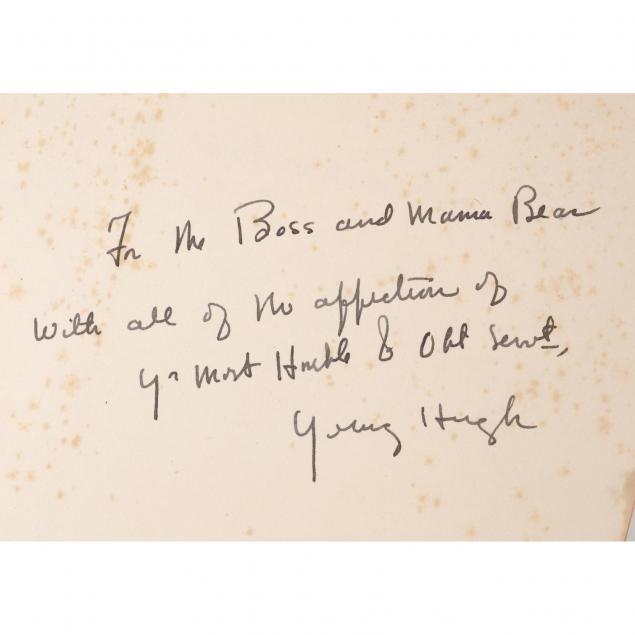 For the Boss and Mama Bear
With all of the affection of
Yr Most Humble & Obt Servt,
Young Hugh